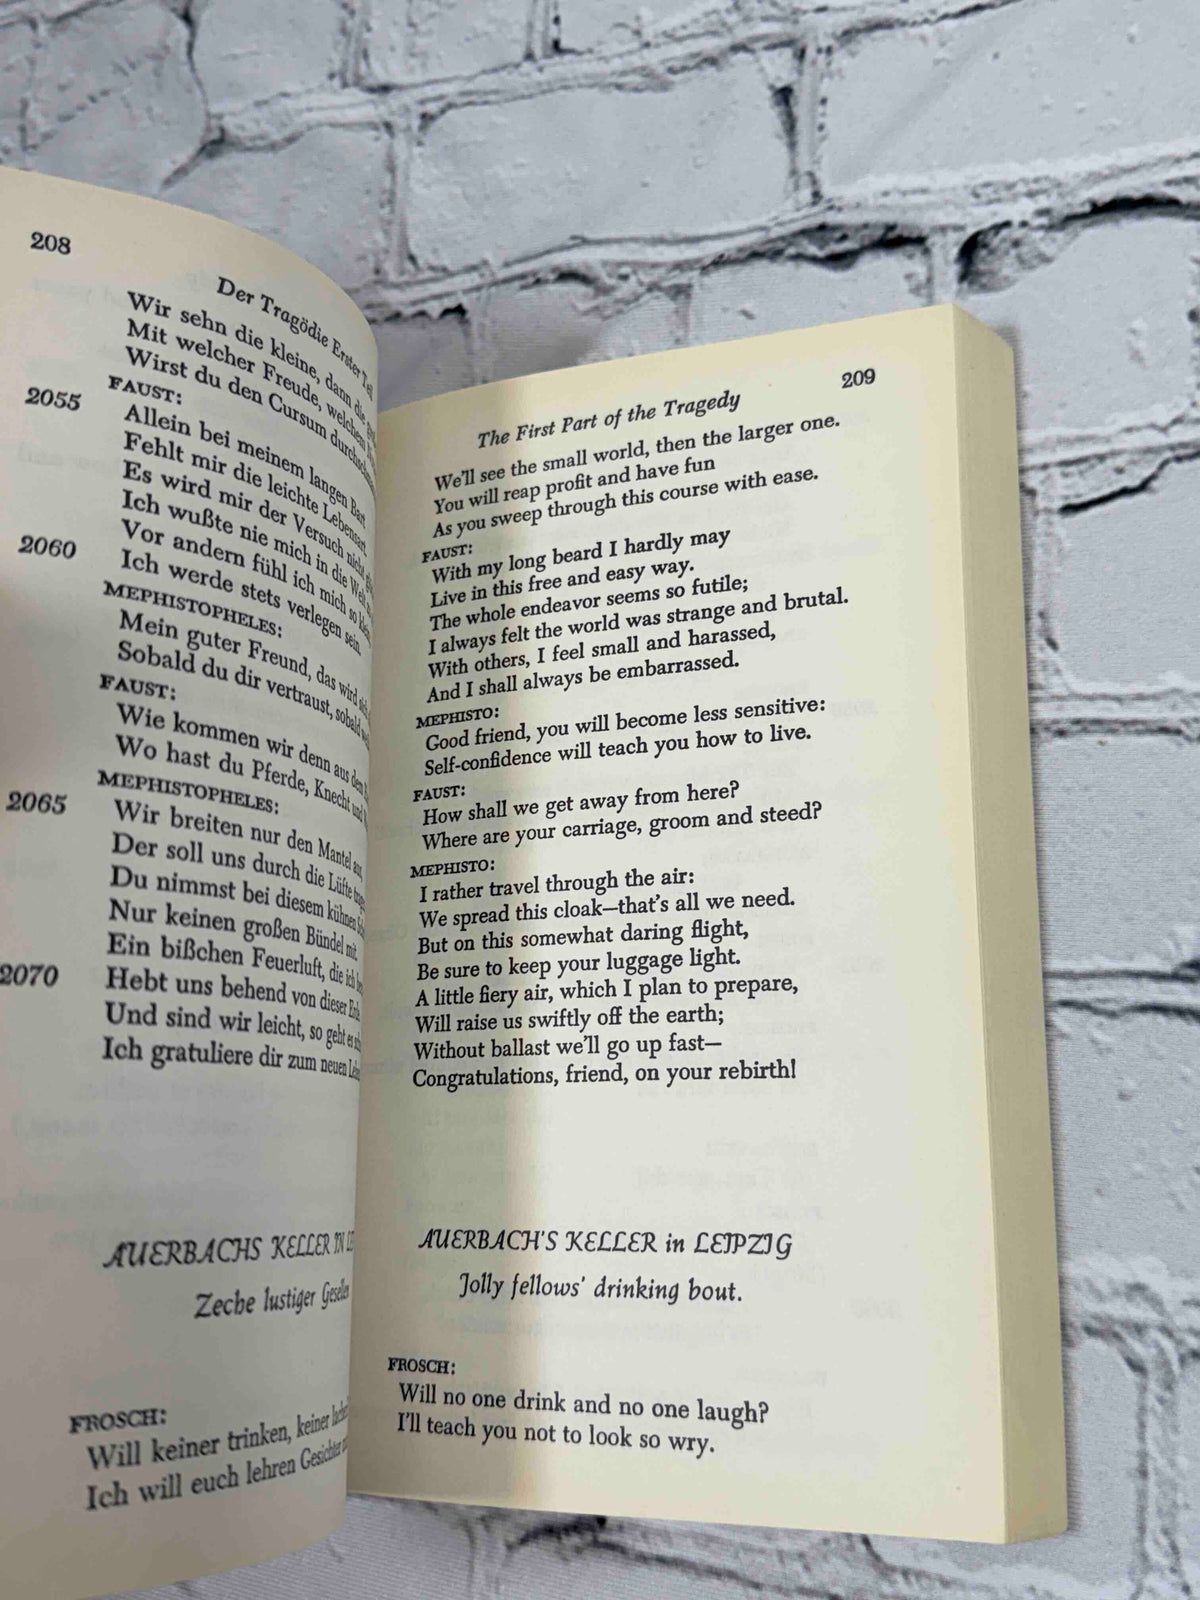 208
Der Tragödie Erster Teil
Wir sehn die kleine, dann die
Mit welcher Freude, welchem
Wirst du den Cursum
FAUST:
2055
Allein bei meinem langen Bart
Fehlt mir die leichte Lebensart.
Es wird mir der Versuch nicht
Ich wußte nie mich in die Welt
Vor andern fühl ich mich so klein,
2060
Ich werde stets verlegen sein.
MEPHISTOPHELES:
Mein guter Freund, das wird
Sobald du dir vertraust, sobald
FAUST:
Wie kommen wir denn aus dem
Wo hast du Pferde, Knecht und
MEPHISTOPHELES:
2065
Wir breiten nur den Mantel aus,
Der soll uns durch die Lüfte
Du nimmst bei diesem kühnen
Nur keinen großen Bündel mit.
Ein bißchen Feuerluft, die ich
2070
Hebt uns behend von dieser Erde.
Und sind wir leicht, so geht es
Ich gratuliere dir zum neuen
AUERBACHS KELLER IN
Zeche lustiger Gesellen
FROSCH:
Will keiner trinken, keiner
Ich will euch lehren Gesichter
209
The First Part of the Tragedy
We'll see the small world, then the larger one.
You will reap profit and have fun
As you sweep through this course with ease.
FAUST:
With my long beard I hardly may
Live in this free and easy way.
The whole endeavor seems so futile;
I always felt the world was strange and brutal.
With others, I feel small and harassed,
And I shall always be embarrassed.
MEPHISTO:
Good friend, you will become less sensitive:
Self-confidence will teach you how to live.
FAUST:
How shall we get away from here?
Where are your carriage, groom and steed?
MEPHISTO:
I rather travel through the air:
We spread this cloak—that's all we need.
But on this somewhat daring flight,
Be sure to keep your luggage light.
A little fiery air, which I plan to prepare,
Will raise us swiftly off the earth;
Without ballast we'll go up fast—
Congratulations, friend, on your rebirth!
AUERBACH'S KELLER in LEIPZIG
Jolly fellows' drinking bout.
FROSCH:
Will no one drink and no one laugh?
I'll teach you not to look so wry.